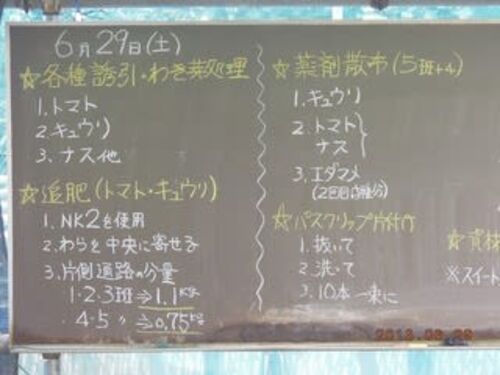 6月29日(土)
☆各種誘引・わき芽処理
1.トマト
2.キュウリ
3.ナス他
☆追肥(トマト・キュウリ)
1.NK2を使用
2.わらを中央に寄せる
3.片側通路の分量
1・2・3班⇒1.1Kg
・4・5〃⇒0.75kg
☆薬剤散布(5班+4)
1.キュウリ
2.トマト
ナス
3.エダマメ
(2回目
☆パスクリップ片付け
1.抜いて
2.洗って
3.10本一束に
☆資材
※スイート
2013.06.29